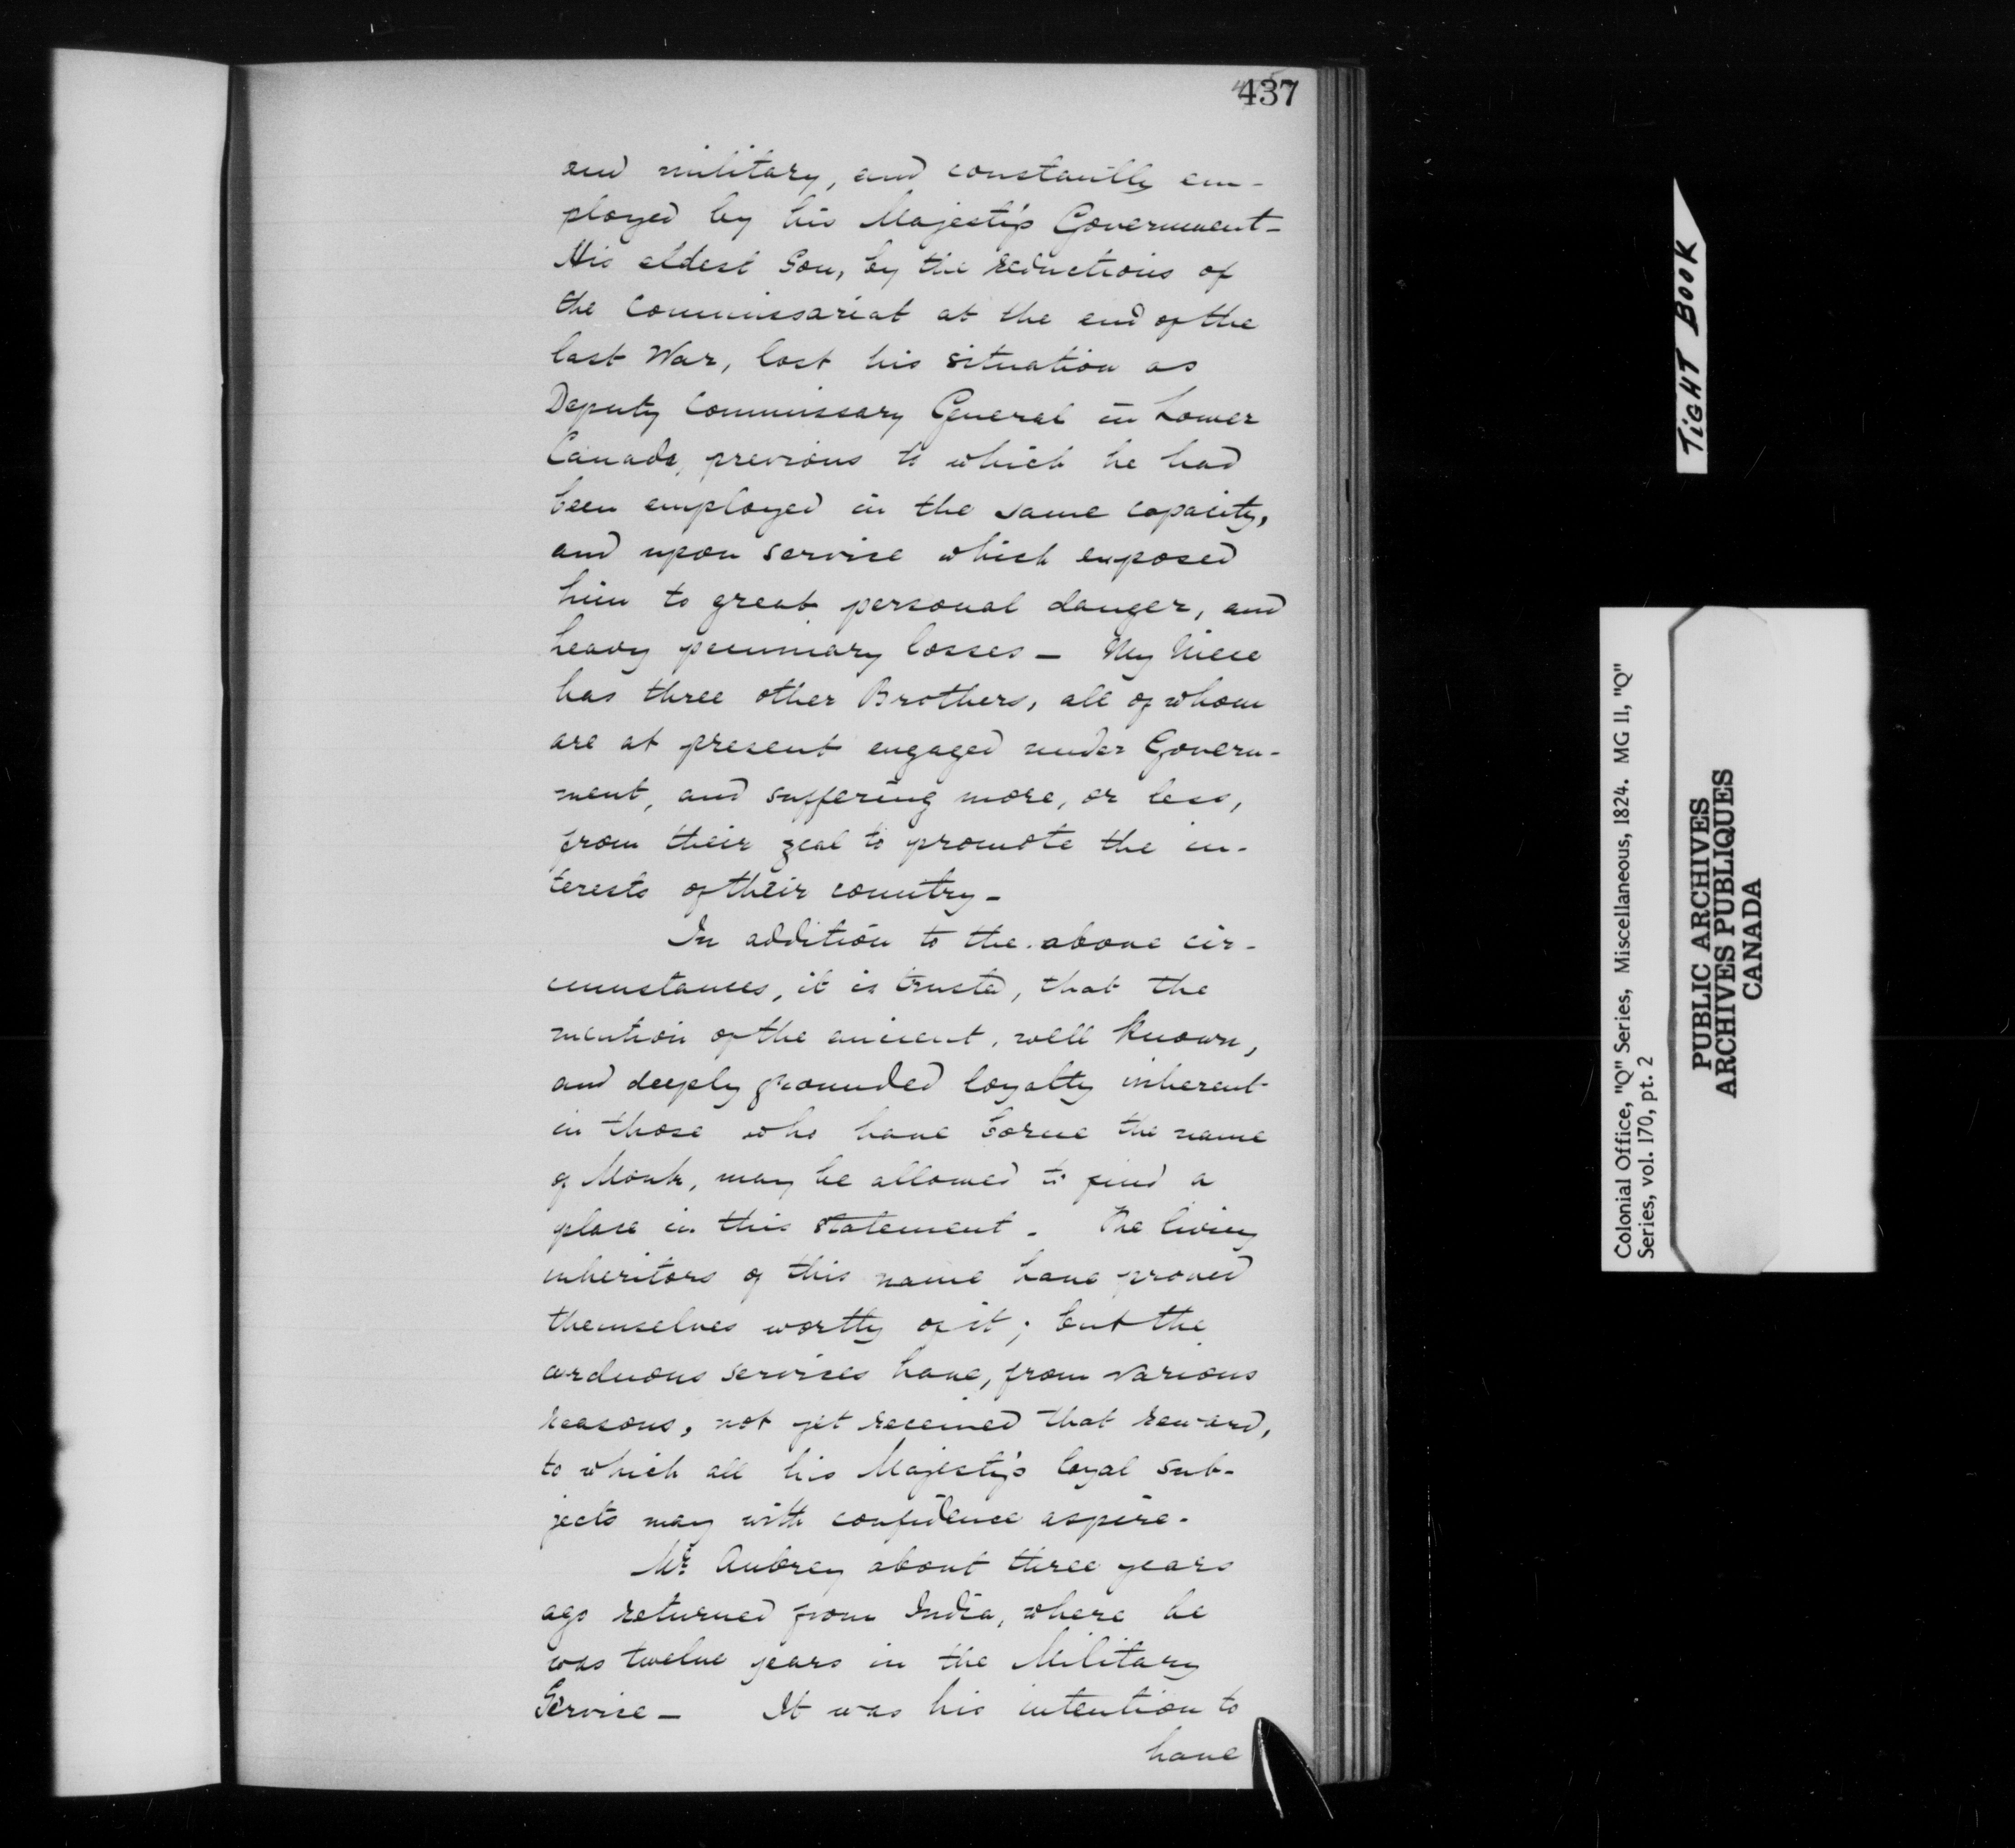 437
and military, and constantly em-
ployed by his Majesty's Government-
His eldest Son, by the reductions of
the Commissariat at the end of the
last War, lost his situation as
Deputy Commissary General in Lower
Canada, previous to which he had
been employed in the same capacity,
and upon service which exposed
him to great personal danger, and
heavy pecuniary losses - My Niece
has three other Brothers, all of whom
are at present engaged under Govern-
ment, and suffering more, or less,
from their zeal to promote the in-
terests of their country -
In addition to the above cir-
cumstances, it is trusted, that the
mention of the ancient, well known,
and deeply grounded loyalty inherent
in those who have borne the name
of Monk, may be allowed to find a
place in this statement. The living
inheritors of this name have proved
themselves worthy of it; but the
arduous services have, from various
reasons, not yet received that reward,
to which all his Majesty's loyal sub-
jects may with confidence aspire.
Mr. Aubrey about three years
ago returned from India, where he
was twelve years in the Military
Service - It was his intention to
have
TIGHT BOOK
Colonial Office, "Q" Series, Miscellaneous, 1824. MG 11, "Q"
Series, vol. 170, pt. 2
PUBLIC ARCHIVES
ARCHIVES PUBLIQUES
CANADA